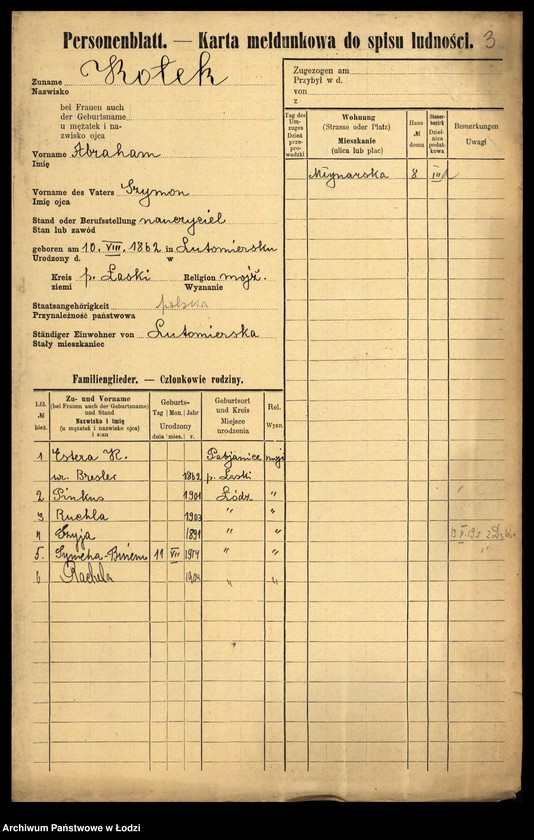 Personenblatt. — Karta meldunkowa do spisu ludności. 3
Zuname Kołek
Nazwisko
bei Frauen auch
der Geburtsname
u mężatek i na-
zwisko ojca
Vorname Abraham
Imię
Vorname des Vaters Szymon
Imię ojca
Stand oder Berufsstellung nauczyciel
Stan lub zawód
geboren am 10. VIII. 1862 in Lutomiersku
Urodzony d. w
Kreis p. Łaski Religion mojż.
ziemi Wyznanie
Staatsangehörigkeit polska
Przynależność państwowa
Ständiger Einwohner von Lutomierska
Stały mieszkaniec
Zugezogen am
Przybył w d.
von
z
Tag des Um-zuges Dzień prze-prowadzki
Wohnung (Strasse oder Platz) Mieszkanie (ulica lub plac)
Haus- № domu
Steuer-bezirk Dziel-nica podat-kowa
Bemerkungen Uwagi
Młynarska 8 III
Familienglieder. — Członkowie rodziny.
Lfd. № bież.
Zu- und Vorname (bei Frauen auch der Geburtsname) und Stand Nazwisko i imię (u mężatek i nazwisko ojca) i stan
Geburts- Tag Mon. Jahr Urodzony dnia mies. r.
Geburtsort und Kreis Miejsce urodzenia
Rel. Wyzn.
1 Estera K. Pabjanice mojż
ur. Bresler 1862 p. Łaski
2 Pinkus 1901 Łódz "
3 Ruchla 1903 " "
4 Szyja 1891 " "
5. Symcha-Binem 11 VII 1914 " " "
6 Rachela " "
Archiwum Państwowe w Łodzi